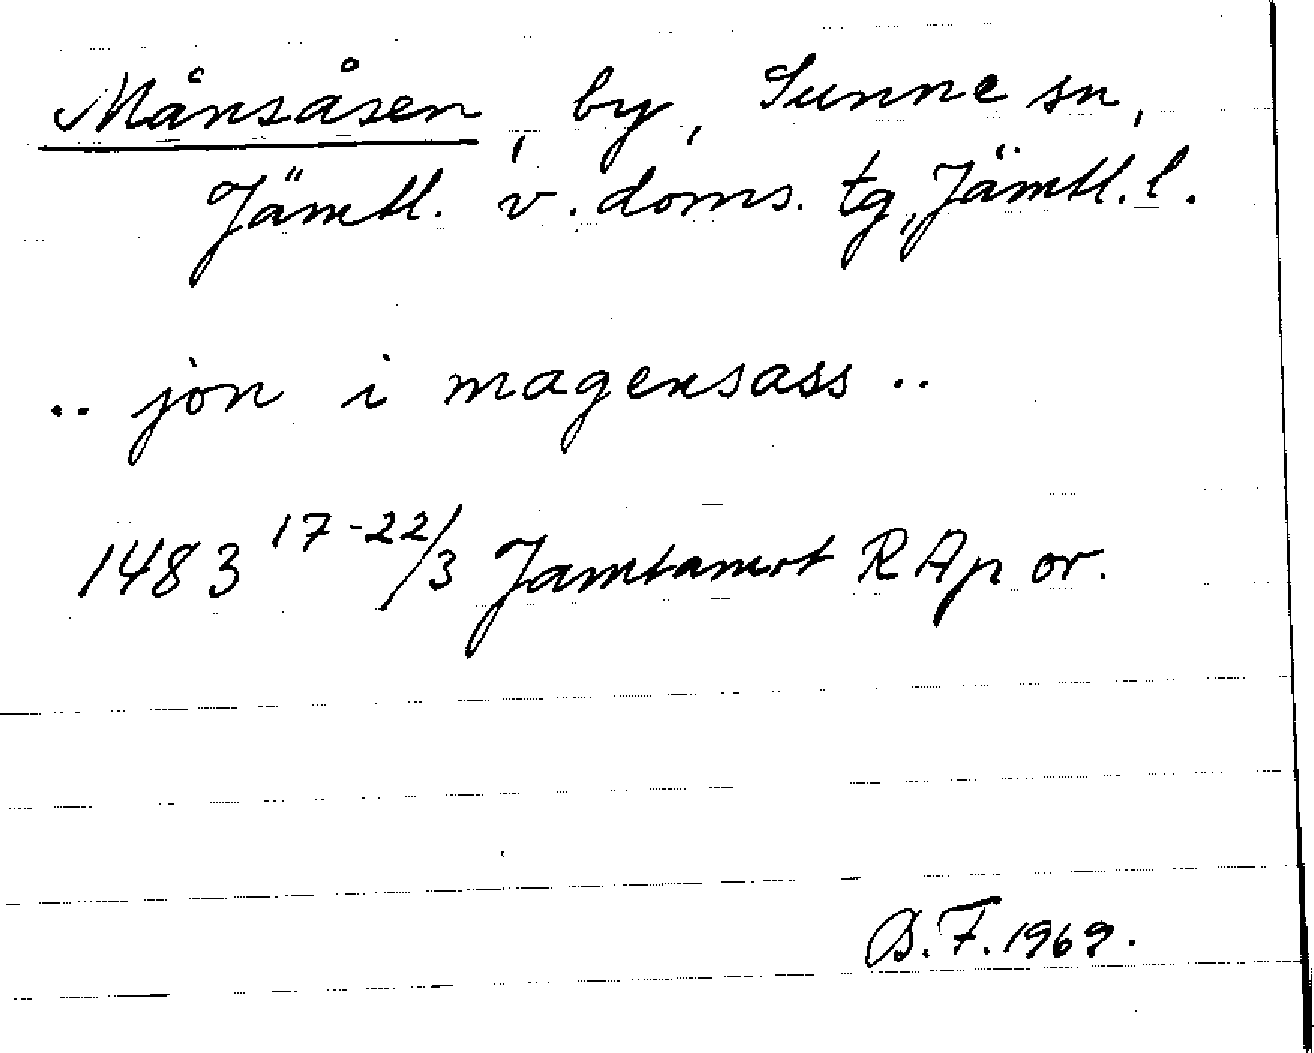 Månsåsen, by, Sunne sn,
Jämtl. v. doms. tg, Jämtl. l.
.. jon i magensass ..
1483 17-22/3 Jamtamot RAp or.
B.F. 1969.